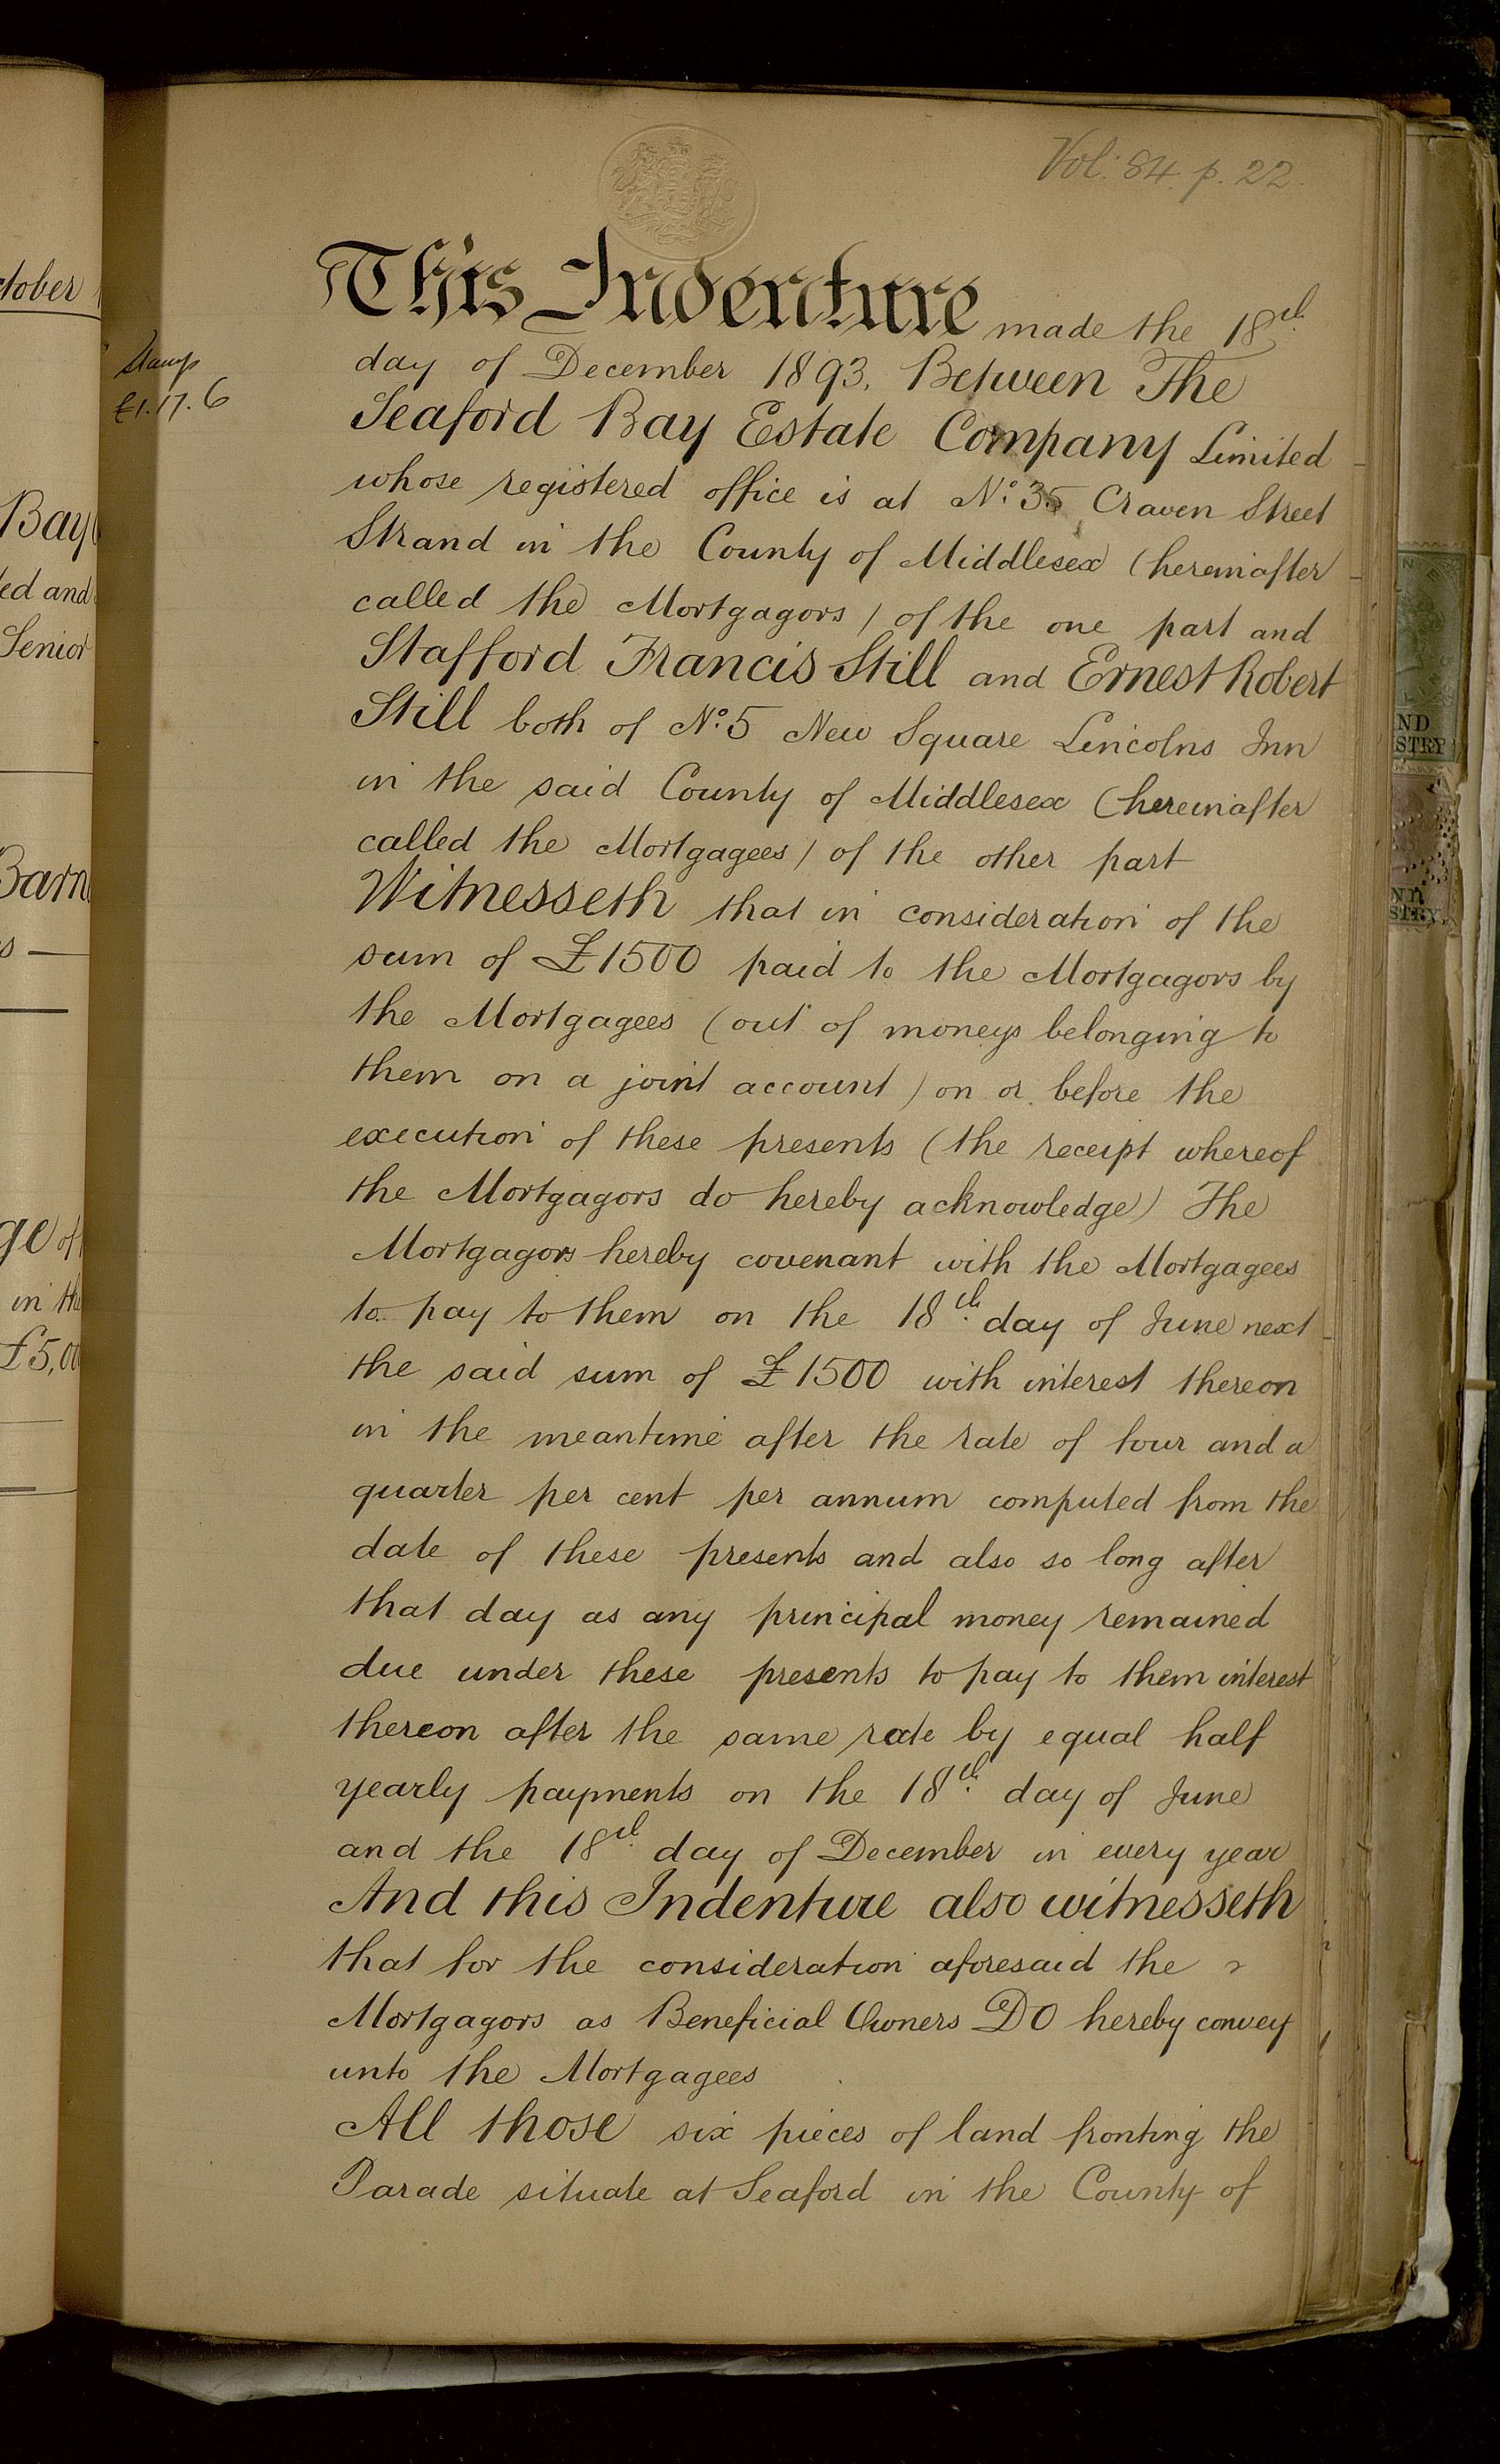 Vol: 84. p. 22.
This Indenture made the 18th
day of December 1893. Between The
Stamp
£1.17.6
Seaford Bay Estate Company Limited
whose registered office is at No. 35 Craven Street
Strand in the County of Middlesex (hereinafter
called the Mortgagors) of the one part and
Stafford Francis Still and Ernest Robert
Still both of No. 5 New Square Lincolns Inn
in the said County of Middlesex (hereinafter
called the Mortgagees) of the other part
Witnesseth that in consideration of the
sum of £1500 paid to the Mortgagors by
the Mortgagees (out of moneys belonging to
them on a joint account) on or before the
execution of these presents (the receipt whereof
the Mortgagors do hereby acknowledge) The
Mortgagors hereby covenant with the Mortgagees
to pay to them on the 18th day of June next
the said sum of £1500 with interest thereon
in the meantime after the rate of four and a
quarter per cent per annum computed from the
date of these presents and also so long after
that day as any principal money remained
due under these presents to pay to them interest
thereon after the same rate by equal half
yearly payments on the 18th day of June
and the 18th day of December in every year
And this Indenture also witnesseth
that for the consideration aforesaid the
Mortgagors as Beneficial Owners DO hereby convey
unto the Mortgagees
All those six pieces of land fronting the
Parade situate at Seaford in the County of
Bay
ed and
Senior
in the
£5,00